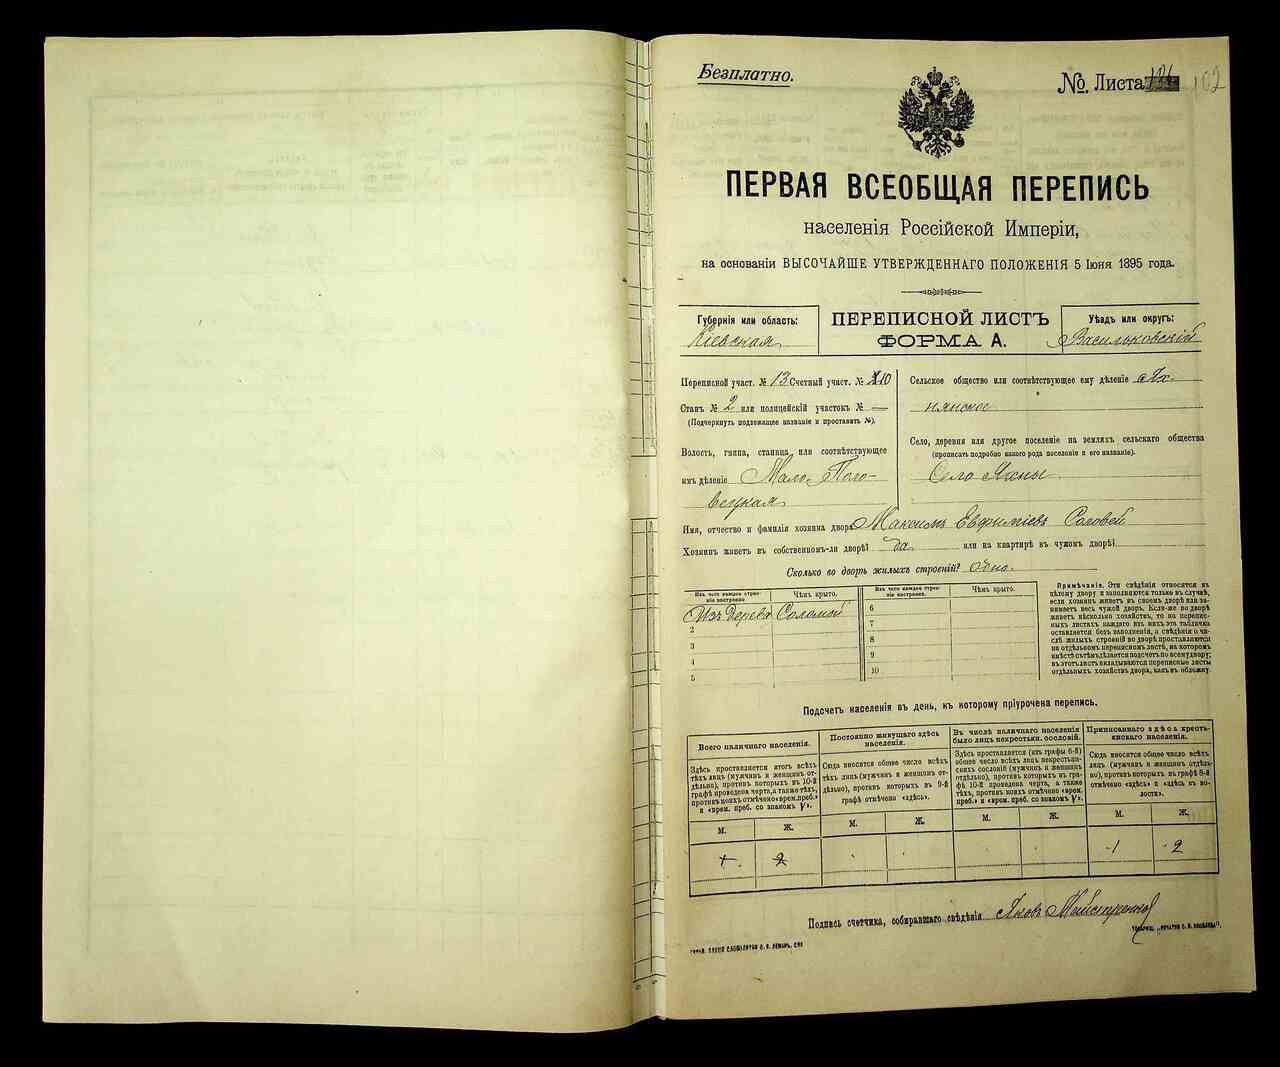 Безплатно.
№ Листа 102
ПЕРВАЯ ВСЕОБЩАЯ ПЕРЕПИСЬ
населенія Россійской Имперіи,
на основаніи ВЫСОЧАЙШЕ УТВЕРЖДЕННАГО ПОЛОЖЕНІЯ 5 Іюня 1895 года.
Губернія или область:
Кіевская
ПЕРЕПИСНОЙ ЛИСТЪ
ФОРМА А.
Уѣздъ или округъ:
Васильковскій
Переписной участ. № 13 Счетный участ. № 10
Станъ № 2 или полицейскій участокъ № —
(Подчеркнуть подлежащее названіе и проставить №).
Волость, гмина, станица или соотвѣтствующее
имъ дѣленіе Мало-Поло-
вецкая
Сельское общество или соотвѣтствующее ему дѣленіе Ях
нянское
Село, деревня или другое поселеніе на земляхъ сельскаго общества
(прописать подробно какого рода поселеніе и его названіе).
Село Яхны
Имя, отчество и фамилія хозяина двора Максимъ Евфиміевъ Соловей
Хозяинъ живетъ въ собственномъ-ли дворѣ? да или на квартирѣ въ чужомъ дворѣ?
Сколько во дворѣ жилыхъ строеній? Одно.
Изъ чего каждое строе-
ніе построено
Чѣмъ крыто.
Изъ чего каждое строе-
ніе построено.
Чѣмъ крыто.
Изъ дерева Соломой
2
3
4
5
6
7
8
9
10
Примѣчаніе. Эти свѣдѣнія относятся къ
цѣлому двору и заполняются только въ случаѣ,
если хозяинъ живетъ въ своемъ дворѣ или за-
нимаетъ весь чужой дворъ. Если-же во дворѣ
живетъ нѣсколько хозяйствъ, то на переписн-
ыхъ листахъ каждаго изъ нихъ эта табличка
оставляется безъ заполненія, а свѣдѣнія о чи-
слѣ жилыхъ строеній во дворѣ проставляются
на отдѣльномъ переписномъ листѣ, на которомъ
вмѣстѣ съ тѣмъ дѣлается подсчетъ по всему двору;
въ этотъ листъ вкладываются переписные листы
отдѣльныхъ хозяйствъ двора, какъ въ обложку.
Подсчетъ населенія въ день, къ которому пріурочена перепись.
Всего наличнаго населенія.
Здѣсь проставляется итогъ всѣхъ
тѣхъ лицъ (мужчинъ и женщинъ от-
дѣльно), противъ которыхъ въ 10-й
графѣ проведена черта, а также тѣхъ,
противъ коихъ отмѣчено «врем. преб.»
и «врем. преб. со знакомъ V».
Постоянно живущаго здѣсь
населенія.
Сюда вносится общее число всѣхъ
тѣхъ лицъ (мужчинъ и женщинъ от-
дѣльно), противъ которыхъ въ 9-й
графѣ отмѣчено «здѣсь».
Въ числѣ наличнаго населенія
было лицъ некрестьян. сословій.
Здѣсь проставляется (изъ графы 6-й)
общее число всѣхъ лицъ некрестьян-
скихъ сословій (мужчинъ и женщинъ
отдѣльно), противъ которыхъ въ гра-
фѣ 10-й проведена черта, а также
тѣхъ, противъ коихъ отмѣчено «врем.
преб.» и «врем. преб. со знакомъ V».
Приписаннаго здѣсь кресть-
янскаго населенія.
Сюда вносится общее число всѣхъ
лицъ (мужчинъ и женщинъ отдѣль-
но), противъ которыхъ въ графѣ 8-й
отмѣчено «здѣсь» и «здѣсь въ во-
лости».
М. Ж. М. Ж. М. Ж. М. Ж.
1 2 1 2
Подпись счетчика, собиравшаго свѣдѣнія Яковъ Майстренко